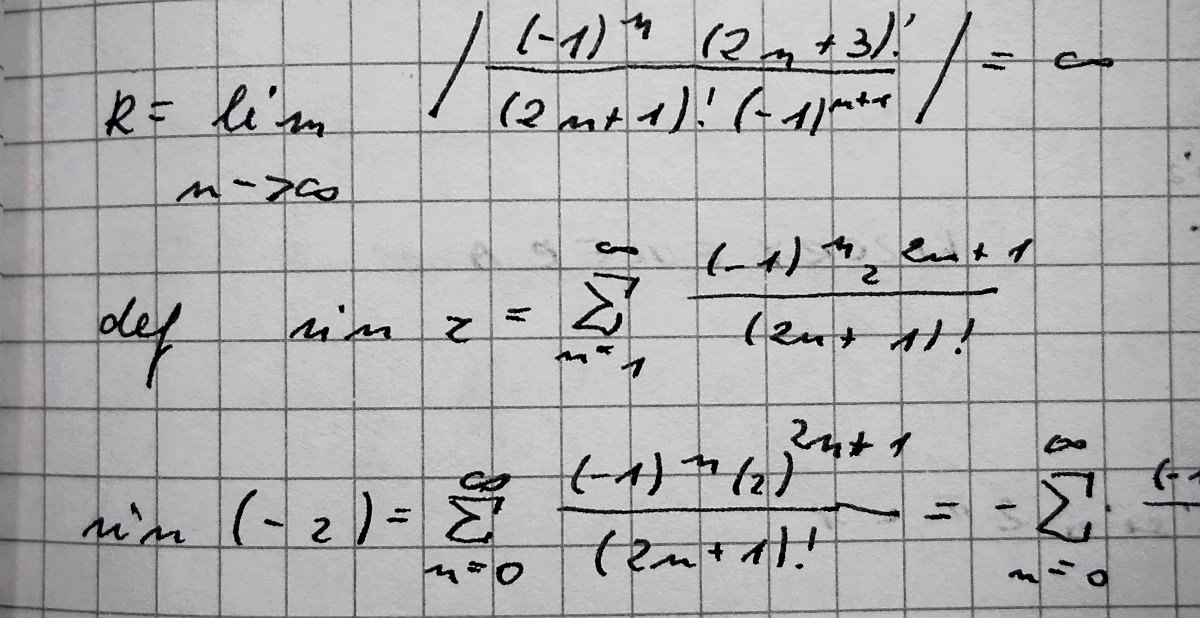 R = lim n->∞ | (-1)^n (2n+3)! / (2n+1)! (-1)^{n+1} | = ∞
def sin z = ∑_{n=1}^{∞} (-1)^n z^{2n+1} / (2n+1)!
sin (-z) = ∑_{n=0}^{∞} (-1)^n (z)^{2n+1} / (2n+1)! = - ∑_{n=0}^{∞} (-1